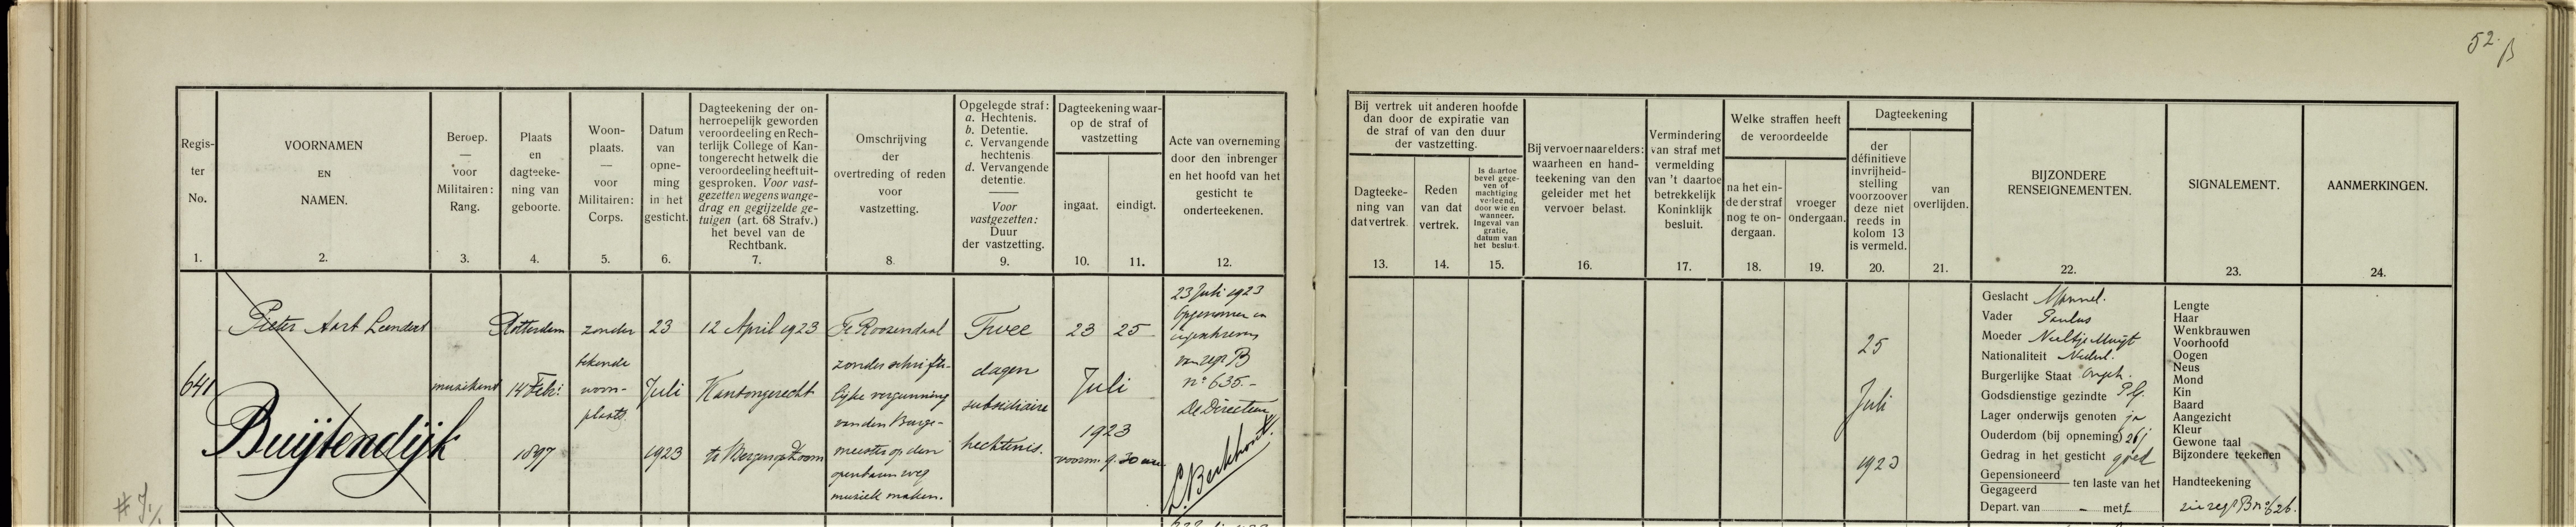 52. β
Regis-
ter
No.
1.
VOORNAMEN
EN
NAMEN.
2.
Beroep.
—
voor
Militairen:
Rang.
3.
Plaats
en
dagteeke-
ning van
geboorte.
4.
Woon-
plaats.
—
voor
Militairen:
Corps.
5.
Datum
van
opne-
ming
in het
gesticht.
6.
Dagteekening der on-
herroepelijk geworden
veroordeeling en Rech-
terlijk College of Kan-
tongerecht hetwelk die
veroordeeling heeft uit-
gesproken. Voor vast-
gezetten wegens wange-
drag en gegijzelde ge-
tuigen (art. 68 Strafv.)
het bevel van de
Rechtbank.
7.
Omschrijving
der
overtreding of reden
voor
vastzetting.
8.
Opgelegde straf:
a. Hechtenis.
b. Detentie.
c. Vervangende
hechtenis
d. Vervangende
detentie.
Voor
vastgezetten:
Duur
der vastzetting.
9.
Dagteekening waar-
op de straf of
vastzetting
ingaat.
10.
eindigt.
11.
Acte van overneming
door den inbrenger
en het hoofd van het
gesticht te
onderteekenen.
12.
Bij vertrek uit anderen hoofde
dan door de expiratie van
de straf of van den duur
der vastzetting.
Dagteeke-
ning van
dat vertrek.
13.
Reden
van dat
vertrek.
14.
Is daartoe
bevel gege-
ven of
machtiging
verleend,
door wie en
wanneer.
Ingeval van
gratie,
datum van
het besluit.
15.
Bij vervoer naar elders:
waarheen en hand-
teekening van den
geleider met het
vervoer belast.
16.
Vermindering
van straf met
vermelding
van 't daartoe
betrekkelijk
Koninklijk
besluit.
17.
Welke straffen heeft
de veroordeelde
na het ein-
de der straf
nog te on-
dergaan.
18.
vroeger
ondergaan.
19.
Dagteekening
der
définitieve
invrijheid-
stelling
voorzoover
deze niet
reeds in
kolom 13
is vermeld.
20.
van
overlijden.
21.
BIJZONDERE
RENSEIGNEMENTEN.
22.
SIGNALEMENT.
23.
AANMERKINGEN.
24.
641
Pieter Aart Leendert
Buijtendijk
muzikant
Rotterdam
14 Feb:
1897
zonder
bekende
woon-
plaats.
23
Juli
1923
12 April 1923
Kantongerecht
te Bergen op Zoom
Te Roosendaal
zonder schrifte-
lijke vergunning
van den Burge-
meester op den
openbaren weg
muziek maken.
Twee
dagen
subsidiaire
hechtenis.
23 25
Juli
1923
voorm. 9.30 uur
23 Juli 1923
Opgenomen en
ingeschreven
van regr B
no 635.-
De Directeur
L. Berkhout
25
Juli
1923
Geslacht Mannel.
Vader Paulus
Moeder Neeltje Muijt
Nationaliteit Nederl.
Burgerlijke Staat Ongeh.
Godsdienstige gezindte P.G.
Lager onderwijs genoten ja
Ouderdom (bij opneming) 26 j
Gedrag in het gesticht goed
Gepensioneerd
Gegageerd
ten laste van het
Depart. van - met f
Lengte
Haar
Wenkbrauwen
Voorhoofd
Oogen
Neus
Mond
Kin
Baard
Aangezicht
Kleur
Gewone taal
Bijzondere teekenen
Handteekening
zie regr B no 626.